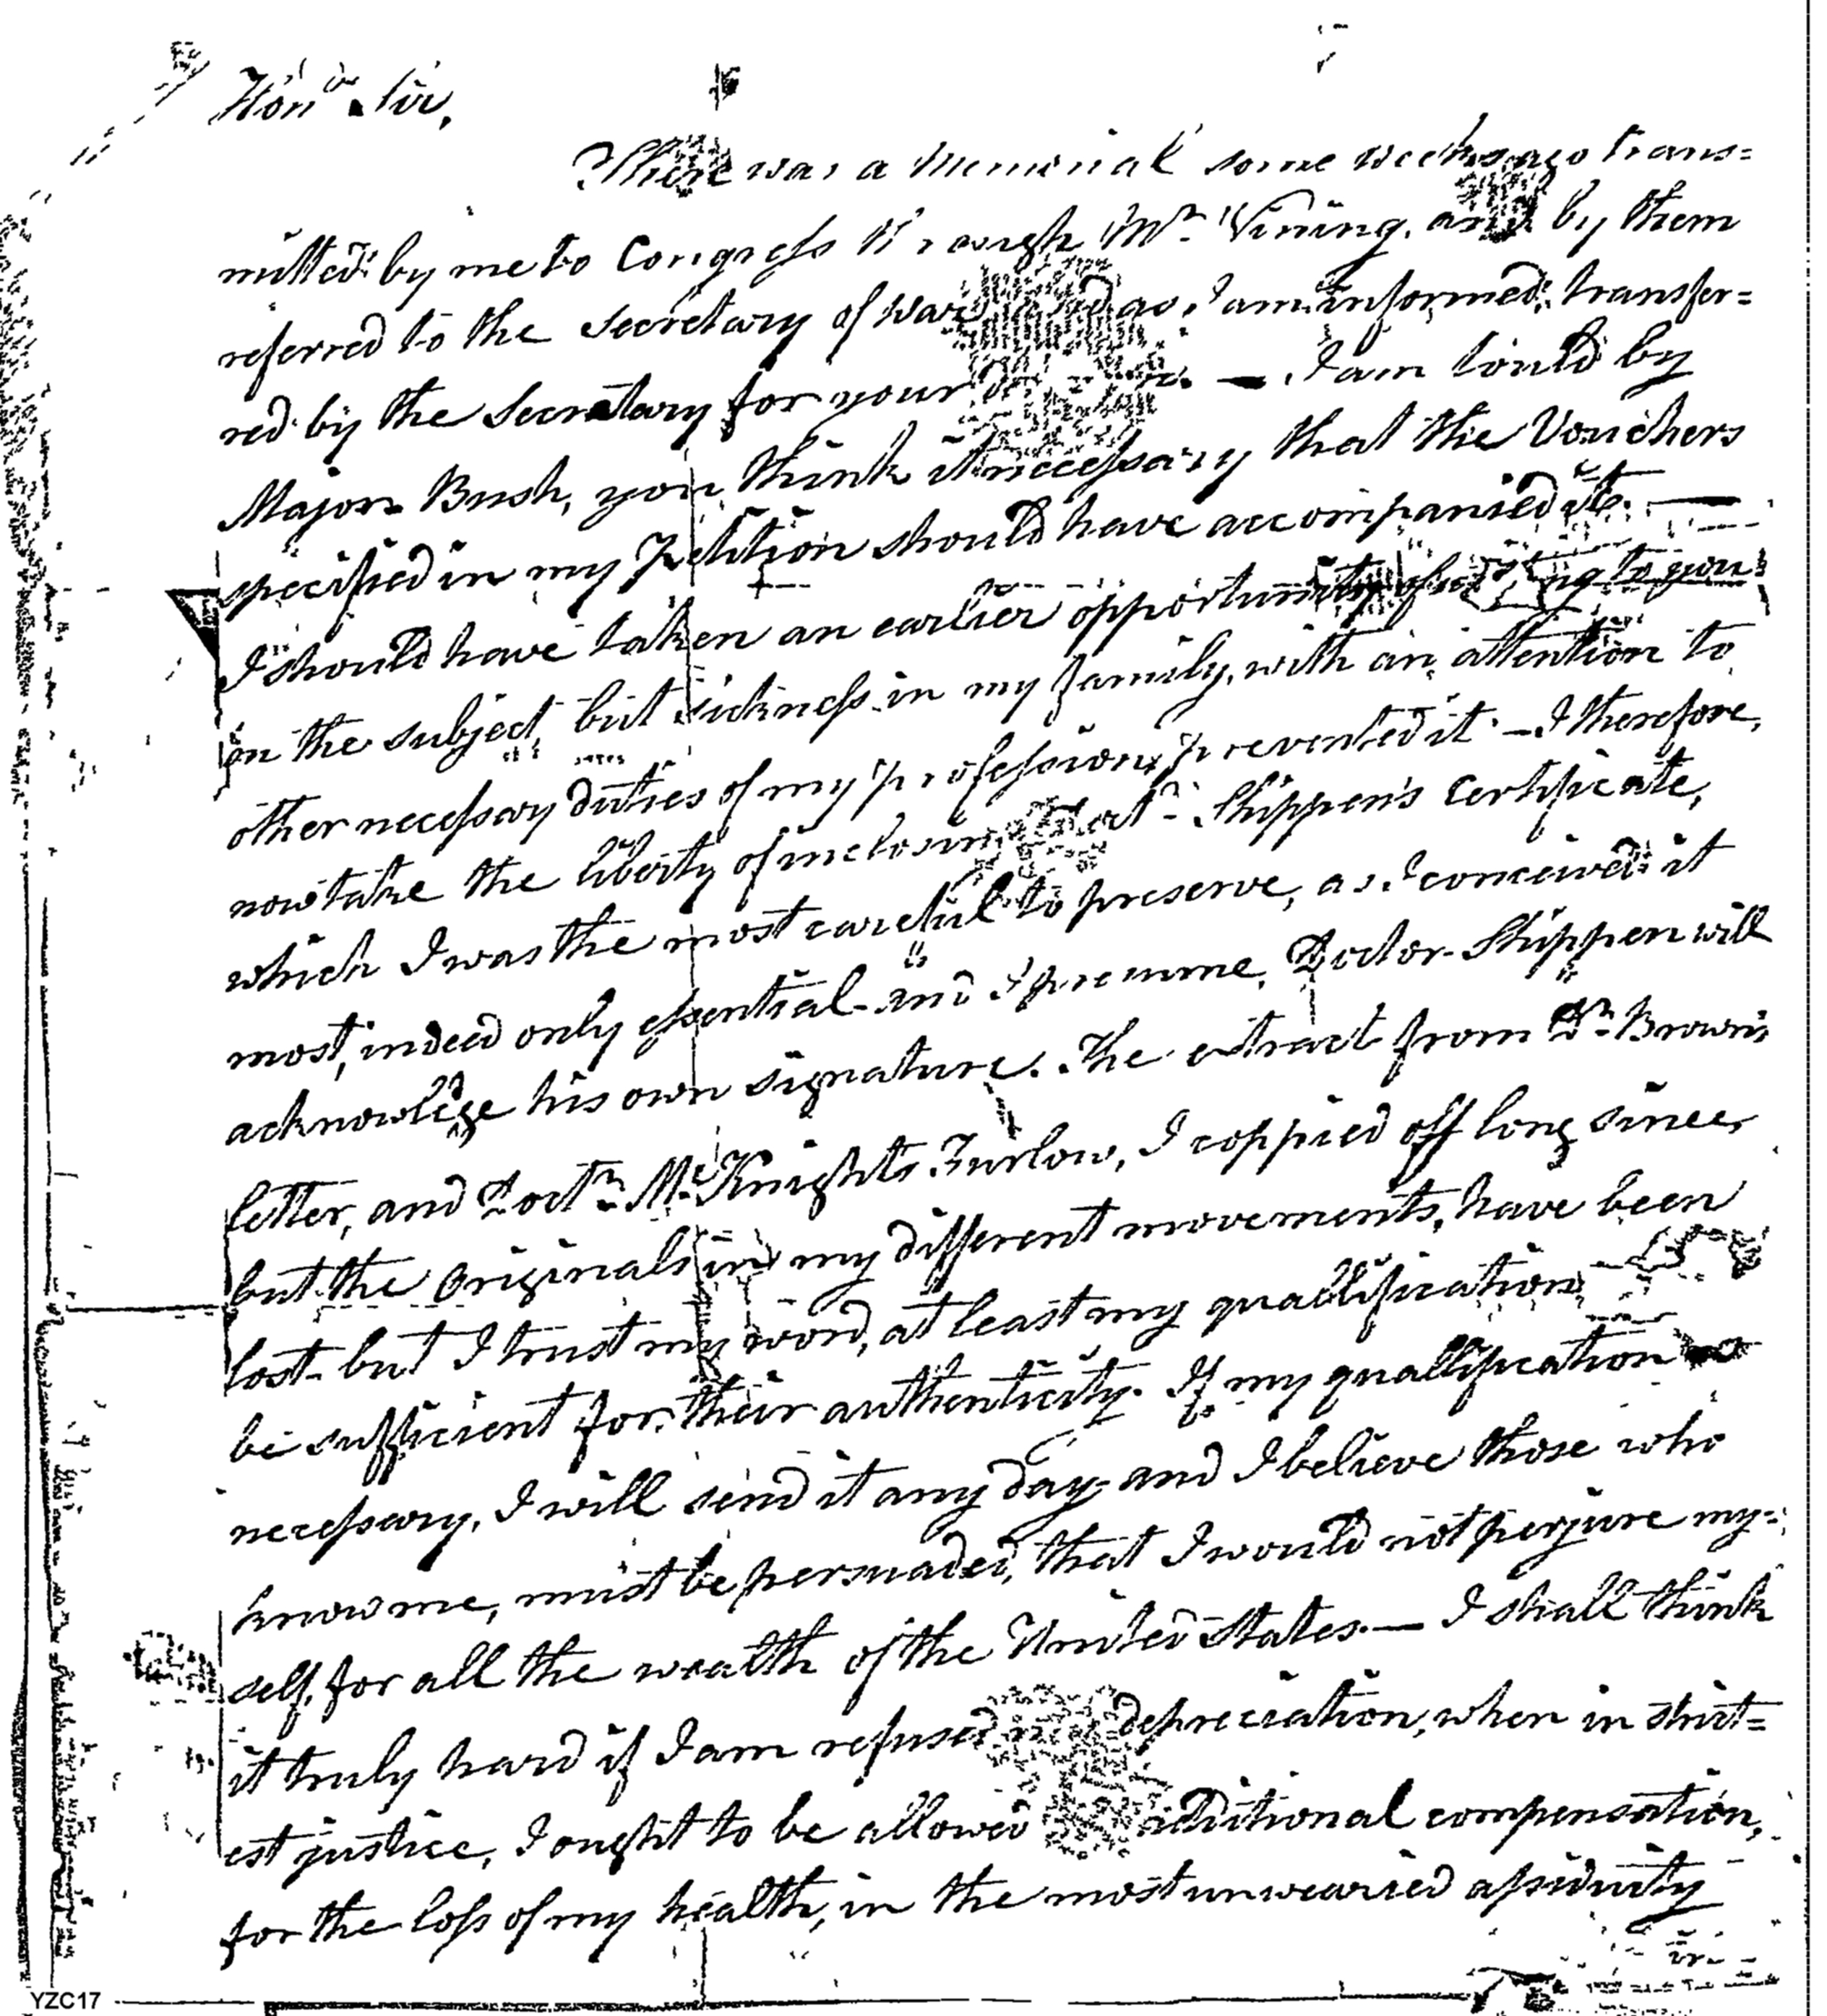 Hon.d Sir,
There was a Memorial some weeks ago trans=
mitted by me to Congress through Mr. Vining, and by them
referred to the Secretary of War, and as I am informed, transfer=
red by the Secretary for your — I am tould by
Major Bush, you think it necessary that the Vouchers
specified in my Petition should have accompanied it. —
I should have taken an earlier opportunity of to you
on the subject, but sickness in my family, with an attention to
other necessary duties of my profession, prevented it — I therefore,
now take the liberty of inclosing Doct.r Shippen's Certificate,
which I was the most careful to preserve, as I conceived it
most, indeed only essential - and I presume, Doctor Shippen will
acknowlege his own signature. The extract from Dr. Brown's
letter, and Doct.r McKnights Furlow, I coppied off long since,
but the originals in my different movements, have been
lost - but I trust my word, at least my quallification
be sufficient for their authenticity. If my quallification
necessary, I will send it any day, and I believe those who
know me, must be persuaded, that I would not perjure my=
self, for all the wealth of the United States. — I shall think
it truly hard if I am refused my depreciation, when in strict=
est justice, I ought to be allowed additional compensation,
for the loss of my health, in the most unwearied assiduity
YZC17